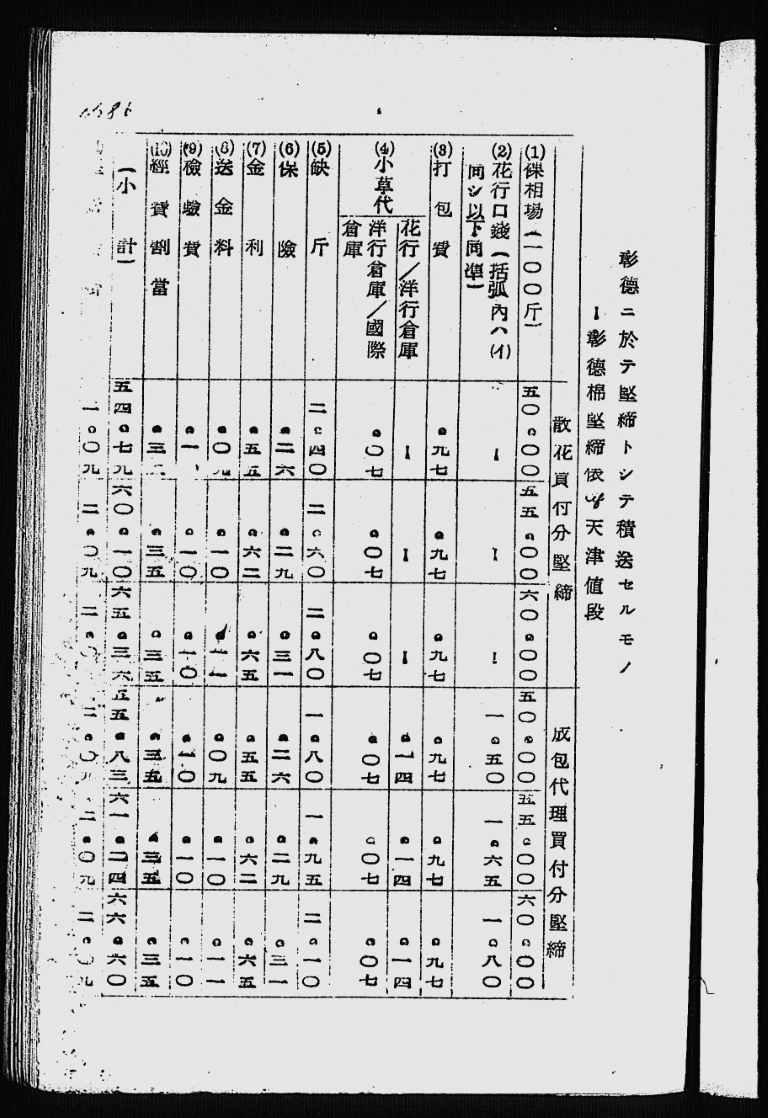 彰德ニ於テ堅締トシテ積送セルモノ
1 彰德棉堅締依ル天津値段
散花買付分堅締 成包代理買付分堅締
(1) 裸相場(一〇〇斤) 五〇。〇〇 五五。〇〇 六〇。〇〇 五〇。〇〇 五五。〇〇 六〇。〇〇
(2) 花行口錢(括弧內ハ(イ)
同シ以下同準) ー ー ー 一。五〇 一。六五 一。八〇
(3) 打包費 。九七 。九七 。九七 。九七 。九七 。九七
(4) 小草代
花行/洋行倉庫 ー ー ー 。一四 。一四 。一四
洋行倉庫/國際
倉庫 。〇七 。〇七 。〇七 。〇七 。〇七 。〇七
(5) 缺斤 二。四〇 二。六〇 二。八〇 一。八〇 一。九五 二。一〇
(6) 保險 。二六 。二九 。三一 。二六 。二九 。三一
(7) 金利 。五五 。六二 。六五 。五五 。六二 。六五
(8) 送金料 。〇九 。一〇 。一一 。〇九 。一〇 。一一
(9) 檢驗費 。一〇 。一〇 。一〇 。一〇 。一〇 。一〇
(10) 經費割當 。三五 。三五 。三五 。三五 。三五 。三五
(小計) 五四。七九 六〇。一〇 六五。三六 五五。八三 六一。二四 六六。六〇
一。〇九 二。〇九 二。〇九 二。〇九